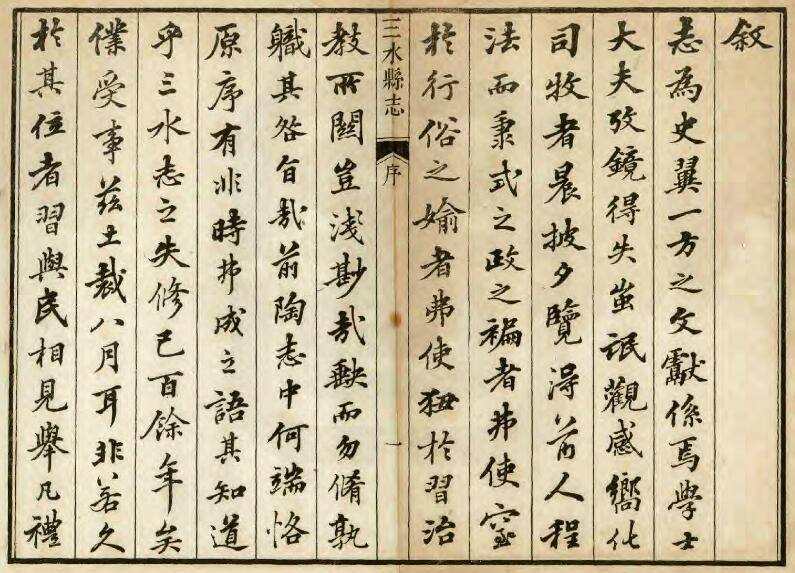 敘
志為史翼一方之文獻係焉學士
大夫攷鏡得失蚩氓觀感嚮化
司牧者晨披夕覽淂前人程
法而秉式之政之褊者弗使窒
於行俗之媮者弗使狃於習治
三水縣志
序
一
教所關豈淺尠哉缺而勿脩孰
軄其咎旨哉前陶志中何端恪
原序有非時弗成之語其知道
乎三水志之失修已百餘年矣
僕受事茲土裁八月耳非若久
於其位者習與民相見舉凡禮